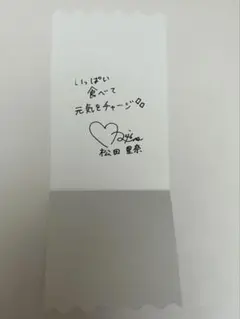 いっぱい
食べて
元気をチャージ
松田 里奈